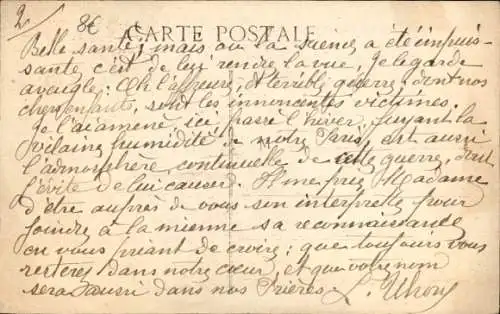 2/
8€
CARTE POSTALE
Belle santé; mais où la science a été impuis-
sante, c'est de lui rendre la vue, Je le garde
aveugle! Oh l'affreuse, et terrible guerre, dont nos
chers enfants, sont les innocentes victimes.
Je l'ai amené ici passé l'hiver, fuyant la
vilaine humidité de notre Paris, et aussi
l'atmosphère continuelle de cette guerre, dont
j'évite de lui causer. Il me prie Madame
d'être auprès de vous son interprète pour
joindre à la mienne sa reconnaissance
en vous priant de croire: que toujours vous
resteres dans notre cœur, et que votre nom
sera aussi dans nos Prières. L.